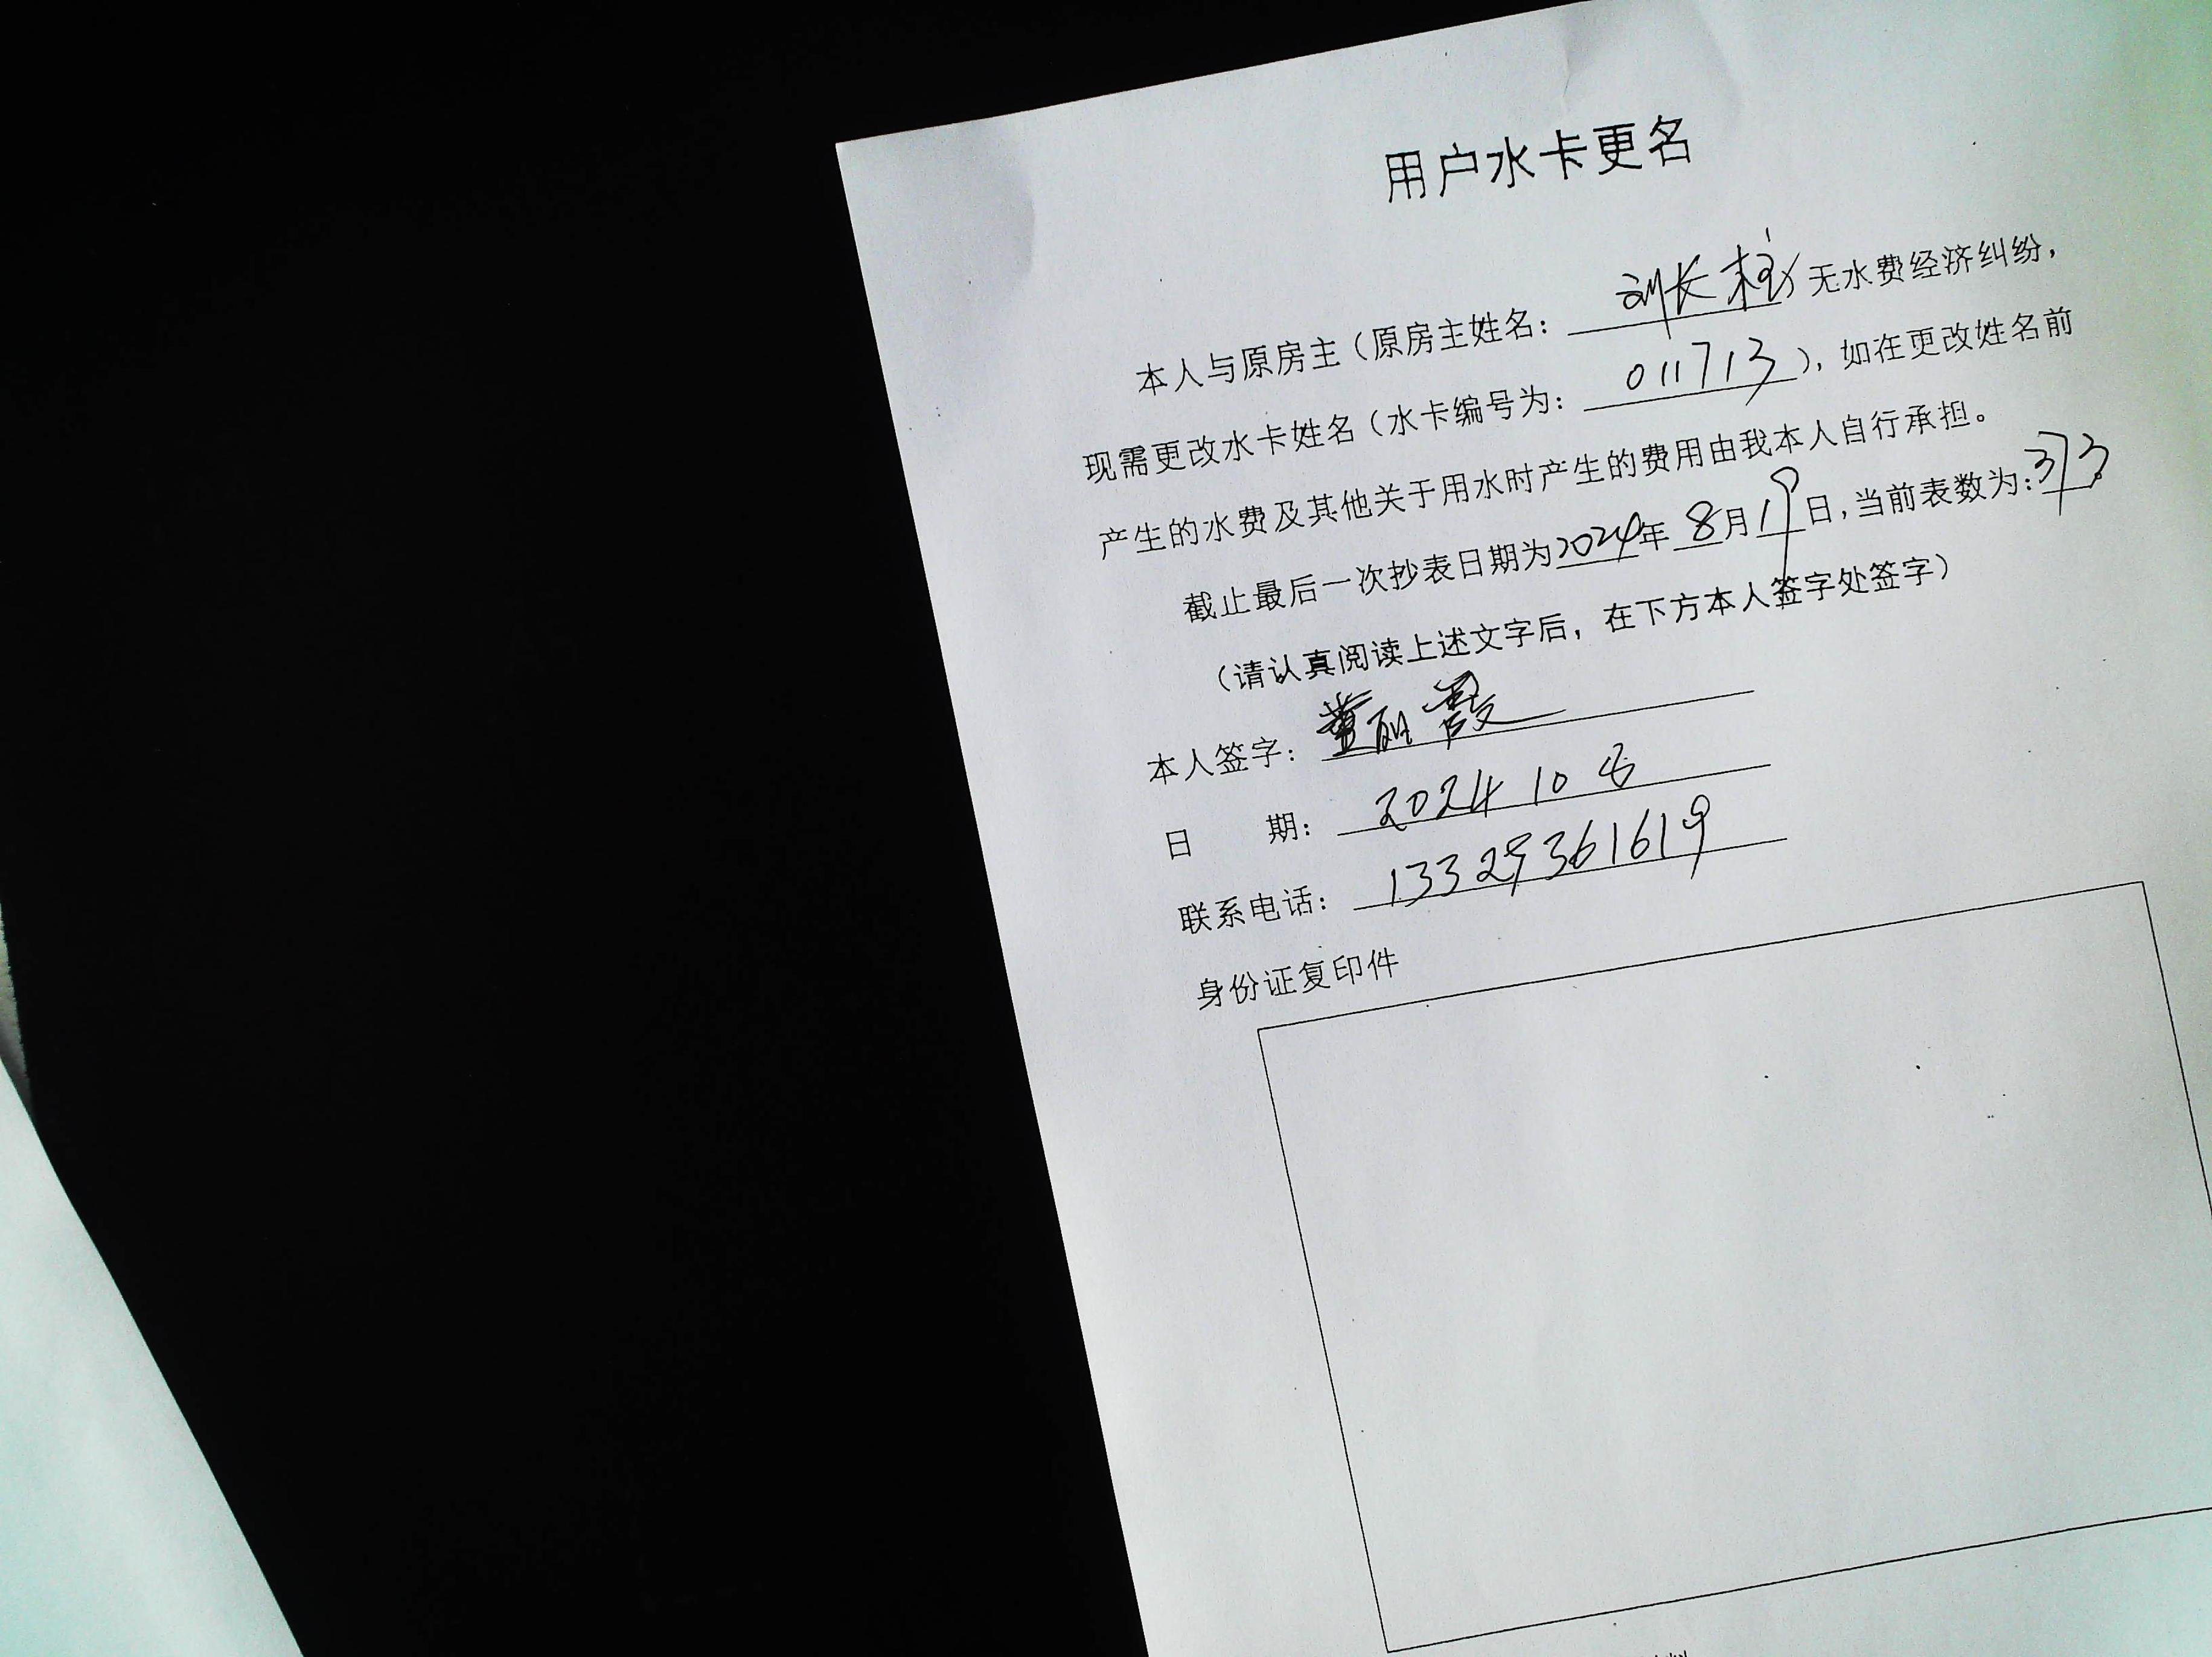 用户水卡更名
本人与原房主（原房主姓名：刘长柱）无水费经济纠纷，
现需更改水卡姓名（水卡编号为：011713），如在更改姓名前
产生的水费及其他关于用水时产生的费用由我本人自行承担。
截止最后一次抄表日期为2024年8月19日，当前表数为：373
（请认真阅读上述文字后，在下方本人签字处签字）
本人签字：董丽霞
日 期：2024 10 8
联系电话：13329361619
身份证复印件